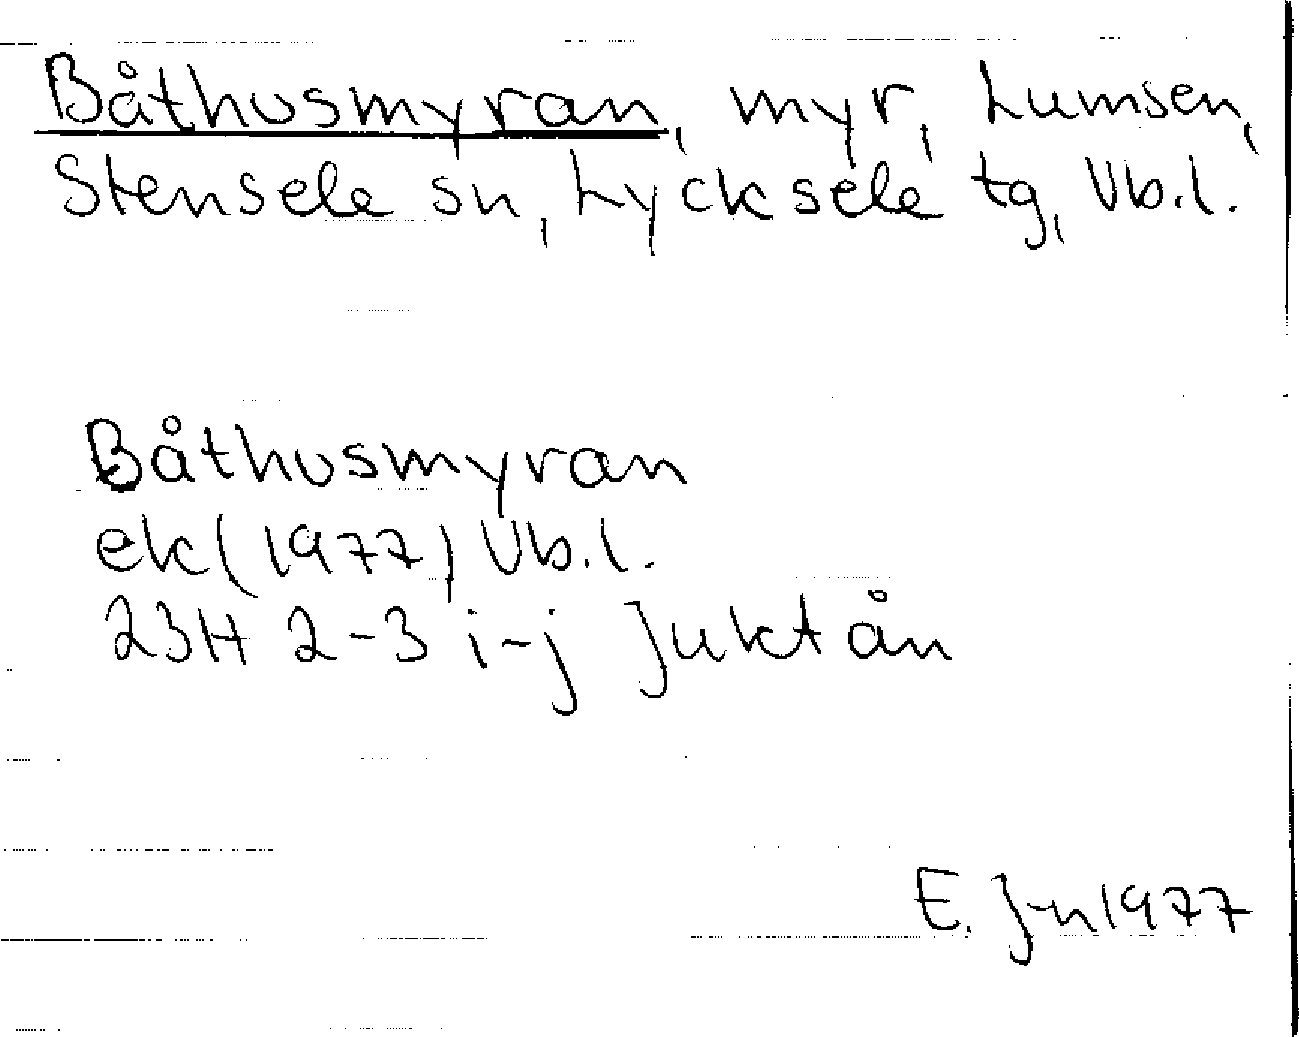 Båthusmyran, myr, Lumsen,
Stensele sn, Lycksele tg, Vb.l.
Båthusmyran
ek (1977) Vb.l.
23H 2-3 i-j Juktån
E. Jn 1977